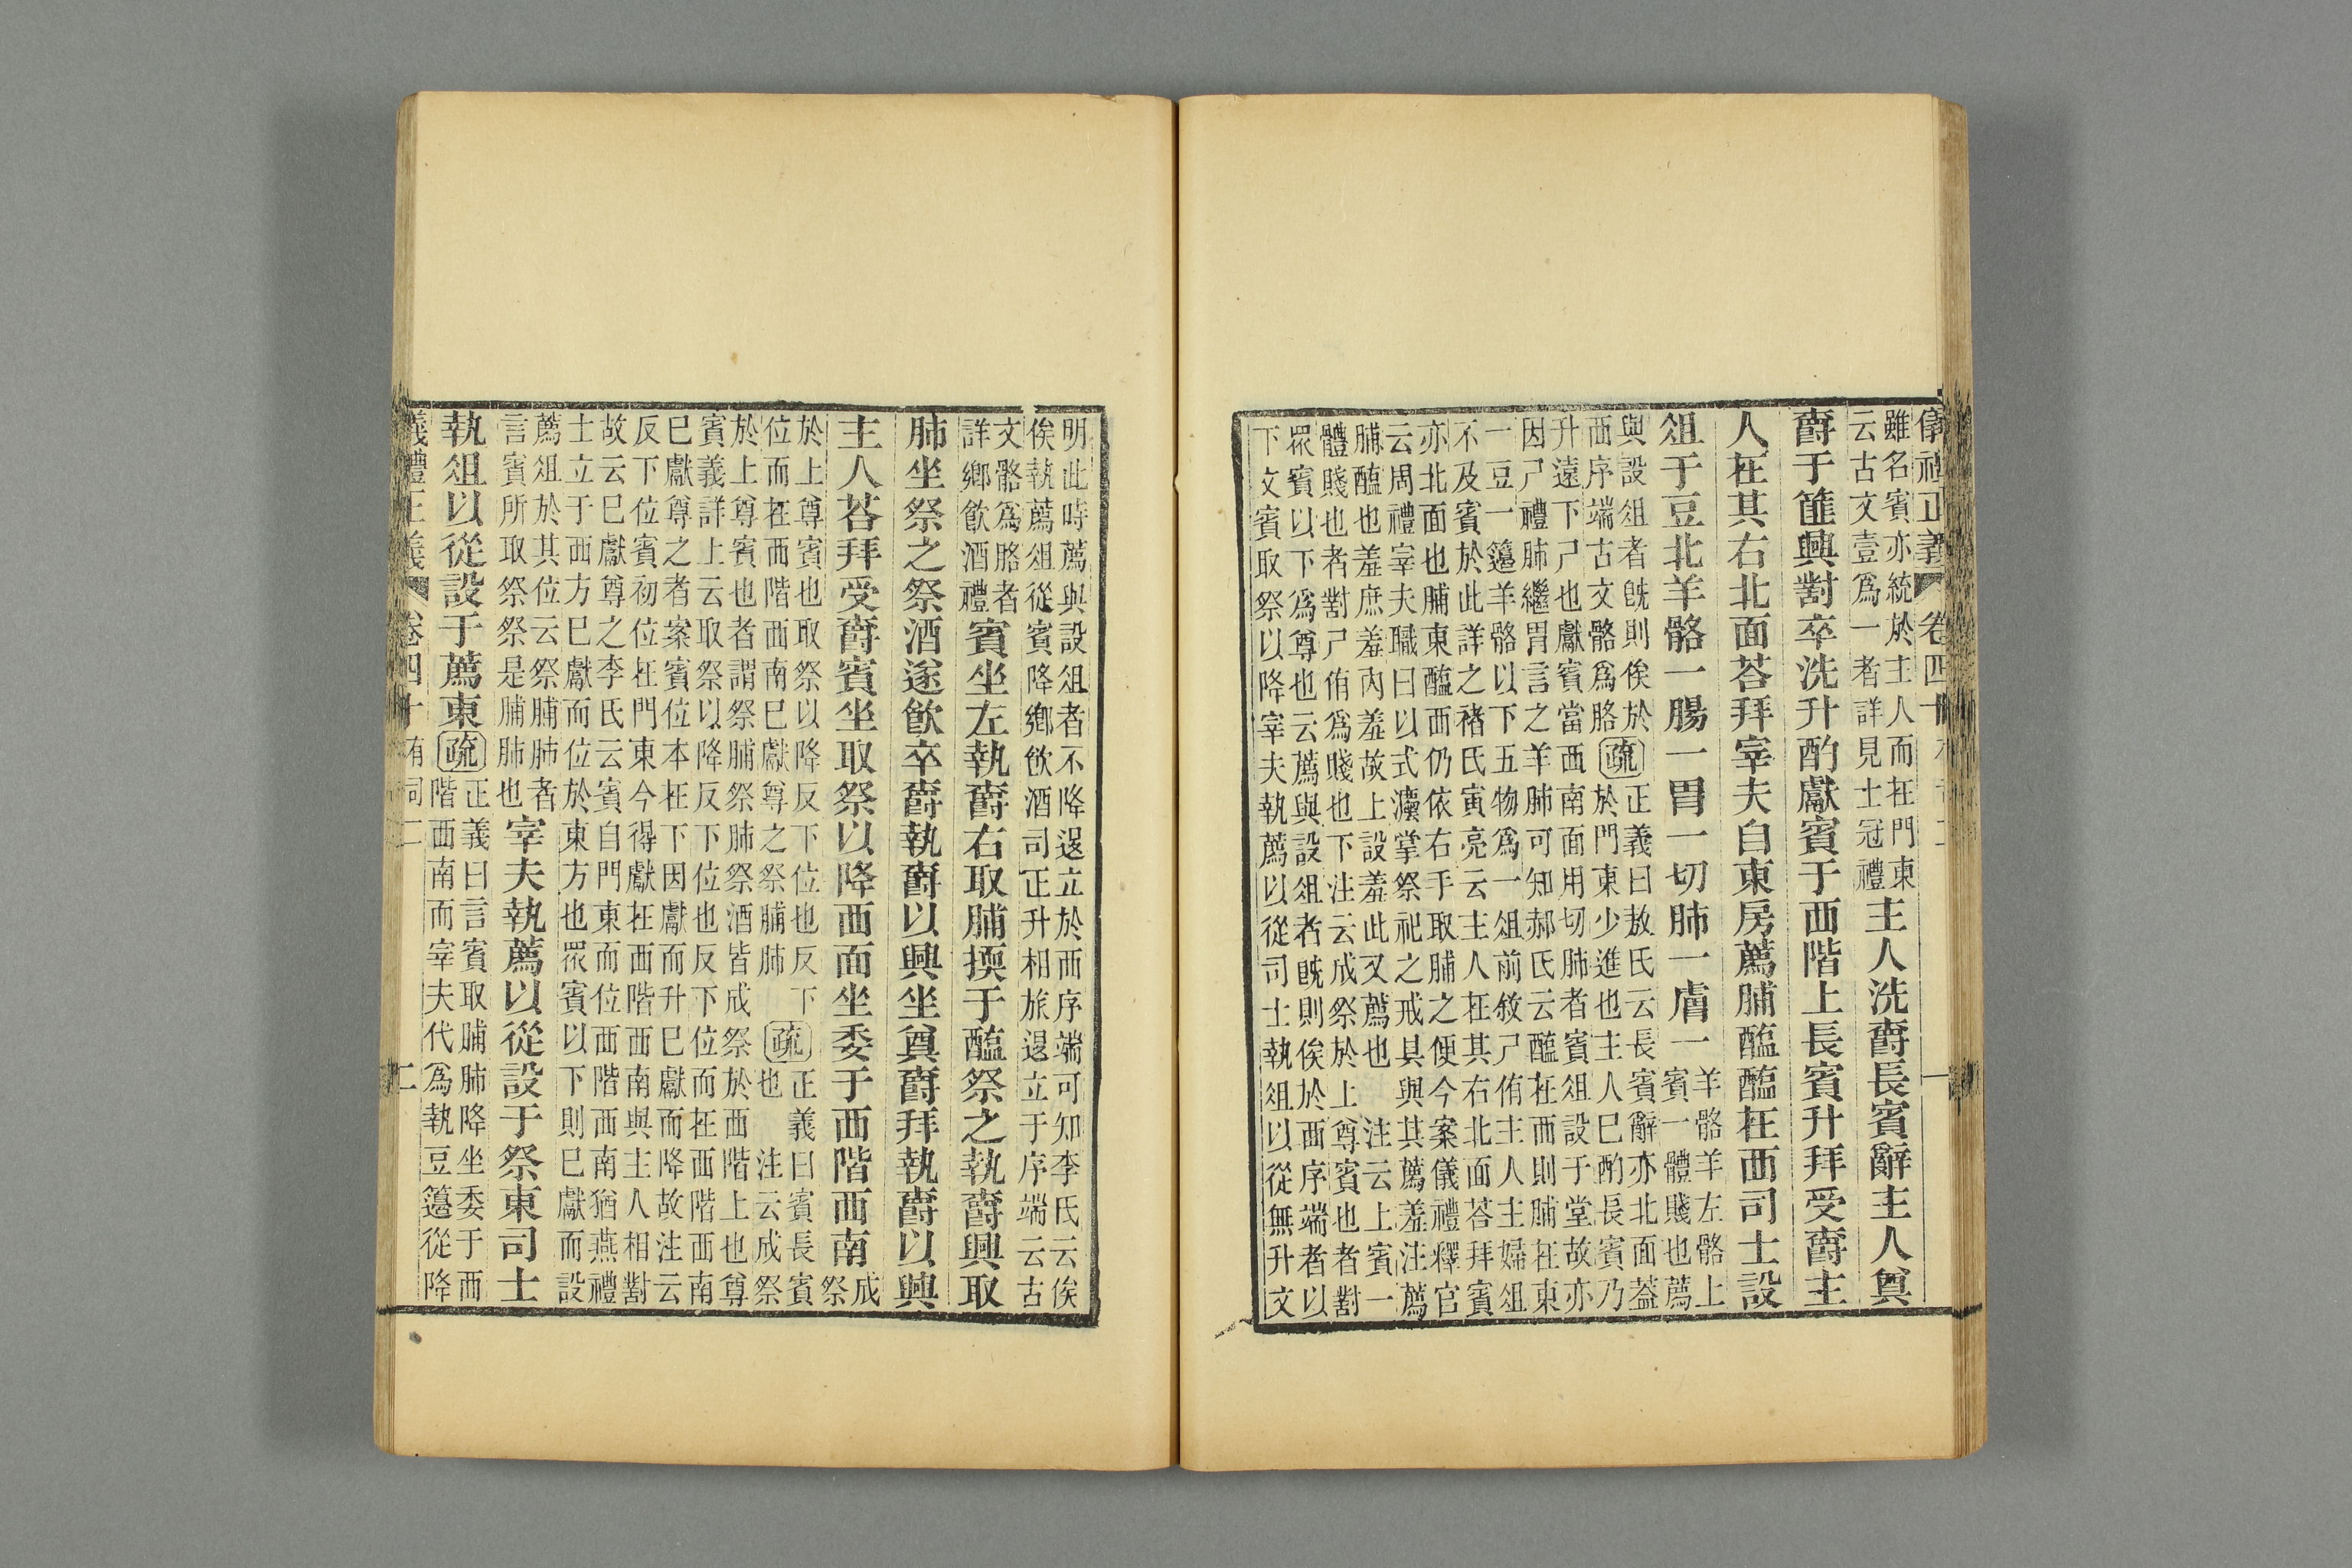 儀禮正義 卷四十
雖名賓亦統於主人而在門東
云古文壹爲一者詳見士冠禮
主人洗爵長賓辭主人奠
爵于篚興對卒洗升酌獻賓于西階上長賓升拜受爵主
人在其右北面荅拜宰夫自東房薦脯醢醢在西司士設
俎于豆北羊骼一腸一胃一切肺一膚一
羊骼羊左骼上
賓一體賤也薦
與設俎者旣則俟於
西序端古文骼爲胳
疏
正義曰敖氏云長賓辭亦北面蓋
於門東少進也主人巳酌長賓乃
升遠下尸也獻賓當西南面用切肺者賓俎設于堂故亦
因尸禮肺繼胃言之羊肺可知郝氏云醢在西則脯在東
一豆一籩羊骼以下五物爲一俎前敘尸侑主人主婦俎
不及賓於此詳之褚氏寅亮云主人在其右北面荅拜賓
亦北面也脯東醢西仍依右手取脯之便今案儀禮釋官
云周禮宰夫職曰以式灋掌祭祀之戒具與其薦羞注薦
脯醢也羞庶羞內羞故上設羞此又薦也 注云上賓一
體賤也者對尸侑爲賤也下注云成祭於上尊賓也者對
眾賓以下爲尊也云薦與設俎者旣則俟於西序端者以
下文賓取祭以降宰夫執薦以從司士執俎以從無升文
明此時薦與設俎者不降退立於西序端可知李氏云俟
俟執薦俎從賓降鄉飲酒司正升相旅退立于序端云古
文骼爲胳者
詳鄉飲酒禮
賓坐左執爵右取脯擩于醢祭之執爵興取
肺坐祭之祭酒遂飲卒爵執爵以興坐奠爵拜執爵以興
主人荅拜受爵賓坐取祭以降西面坐委于西階西南
成
祭
於上尊賓也取祭以降反下位也反下
位而在西階西南巳獻尊之祭脯肺
疏
正義曰賓長賓
也 注云成祭
於上尊賓也者謂祭脯祭肺祭酒皆成祭於西階上也尊
賓義詳上云取祭以降反下位也反下位而在西階西南
巳獻尊之者案賓位本在下因獻而升巳獻而降故注云
反下位賓初位在門東今得獻在西階西南與主人相對
故云巳獻尊之李氏云賓自門東而位西階西南猶燕禮
士立于西方巳獻而位於東方也眾賓以下則巳獻而設
薦俎於其位云祭脯肺者
言賓所取祭祭是脯肺也
宰夫執薦以從設于祭東司士
執俎以從設于薦東
疏
正義曰言賓取脯肺降坐委于西
階西南而宰夫代爲執豆籩從降
儀禮正義 卷四十 有司二 二